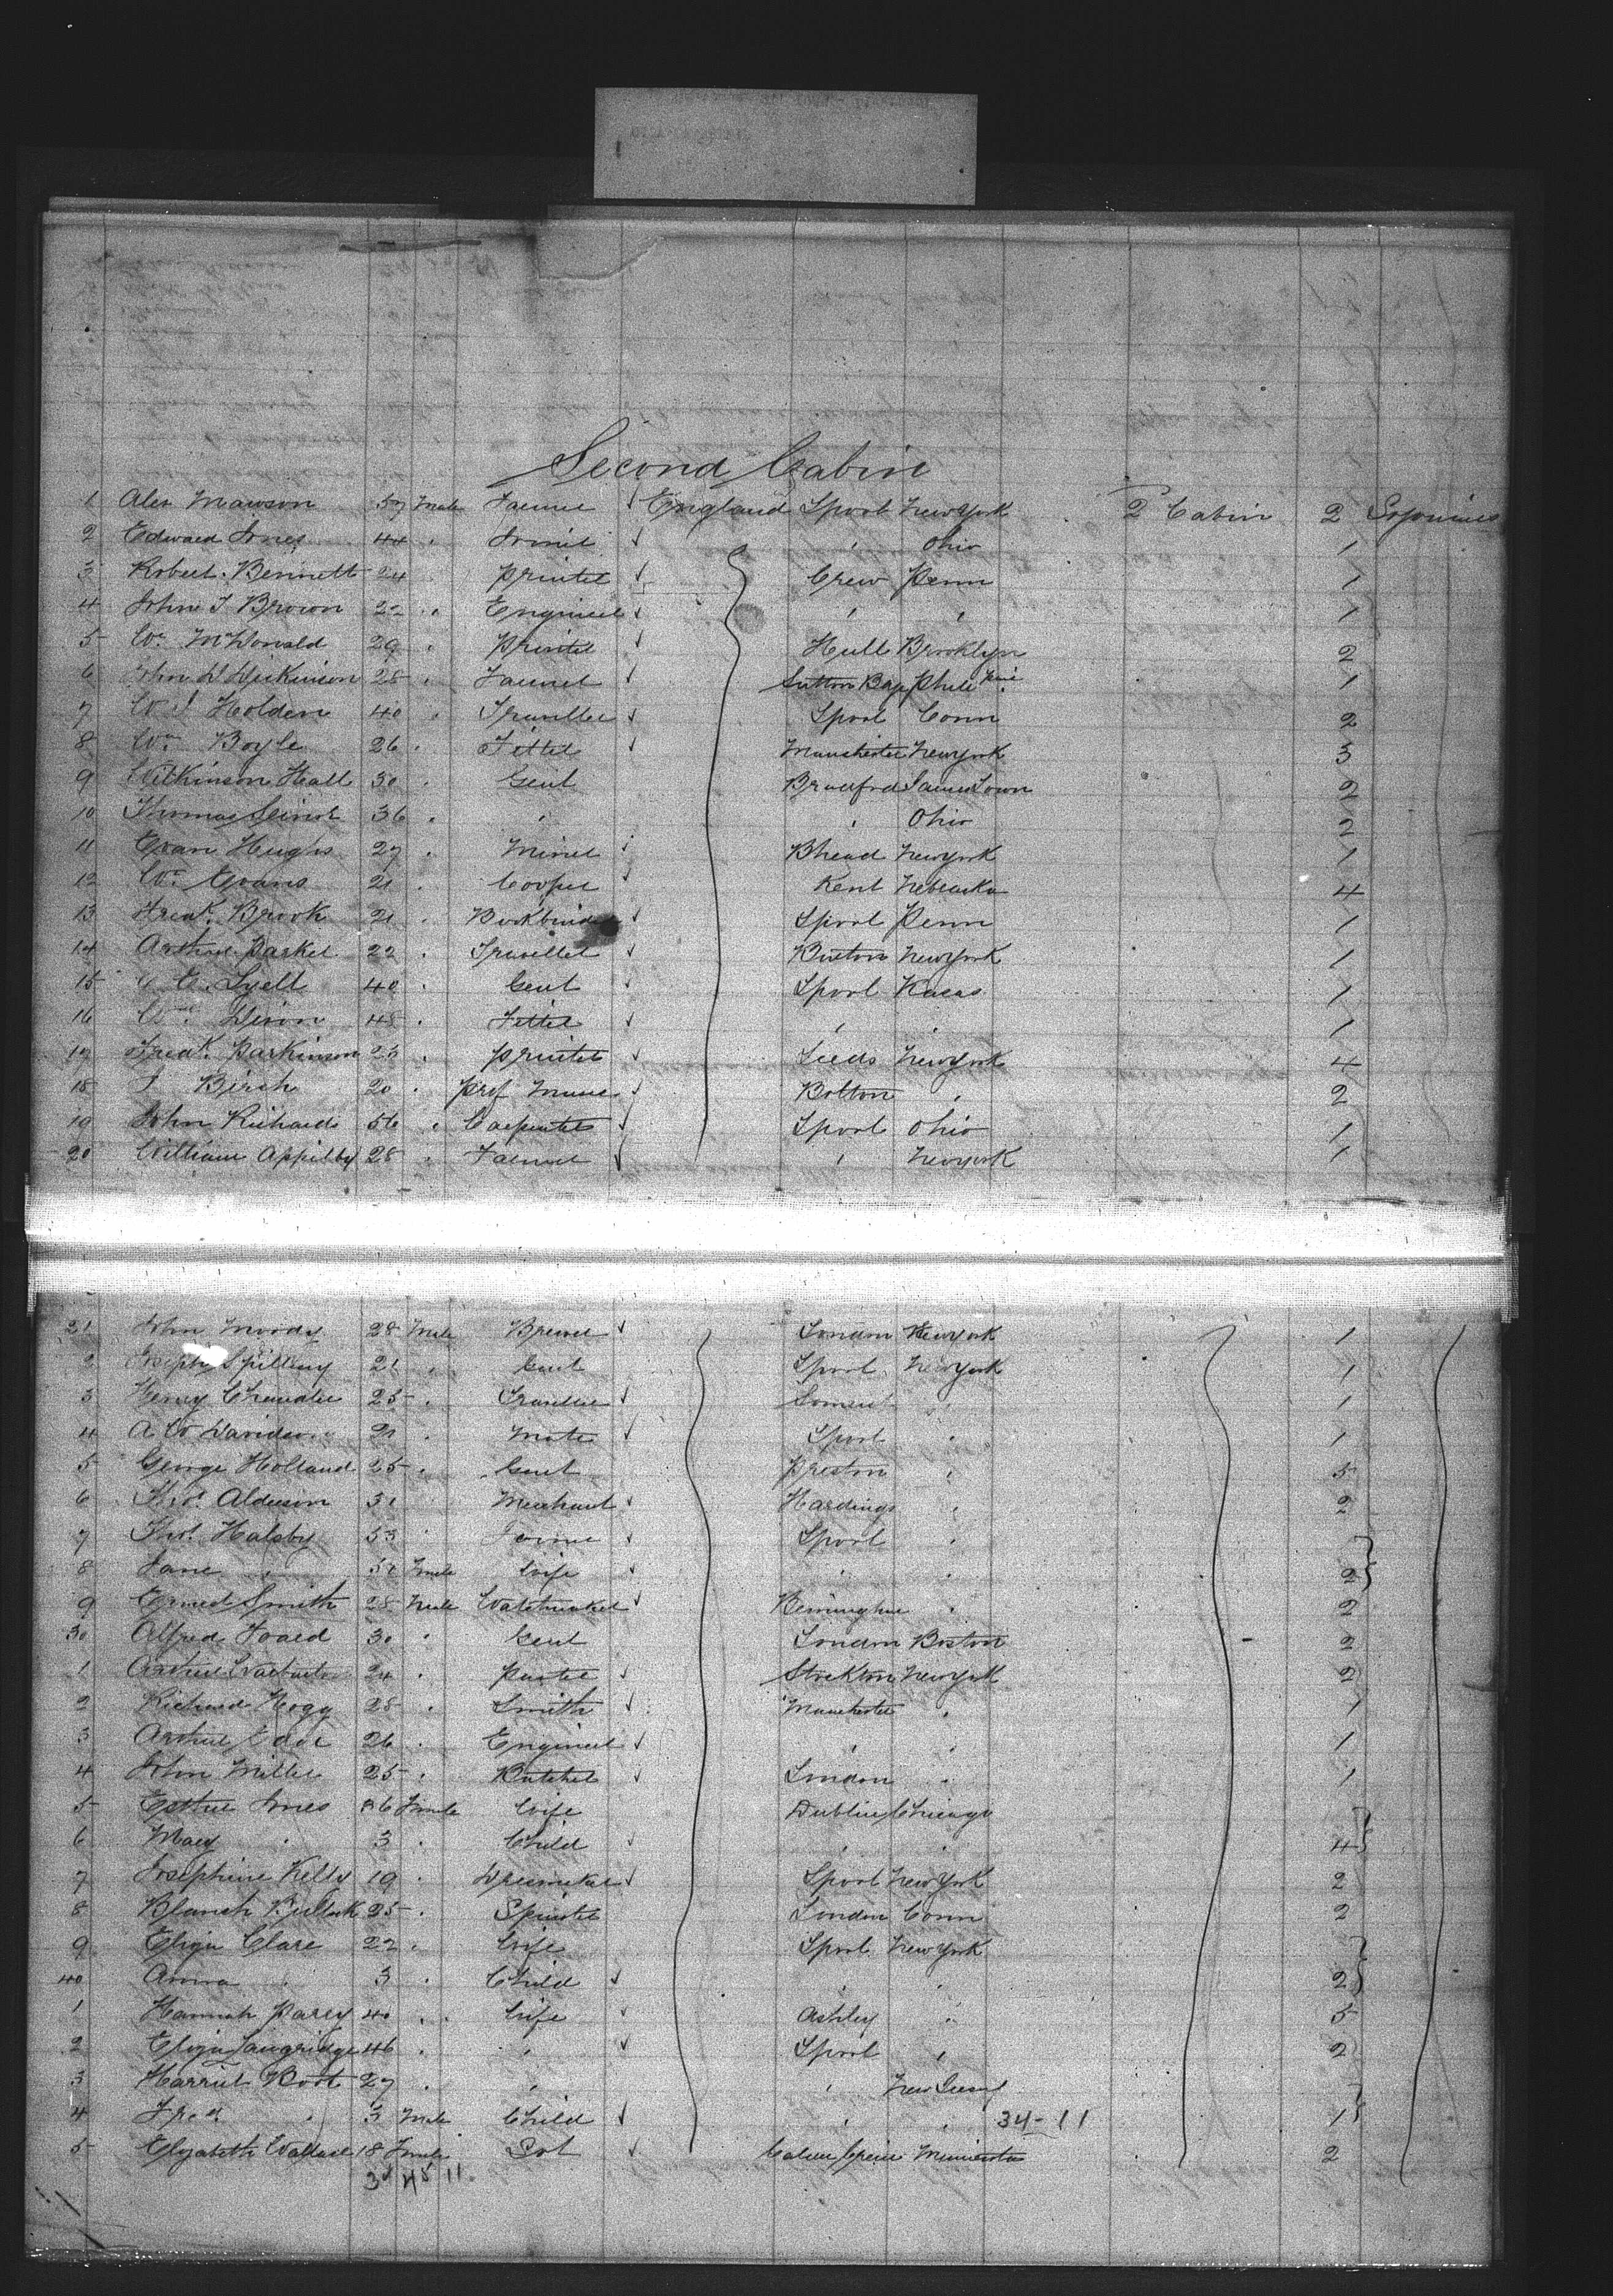 Second Cabin
1 Alex Mawson 57 Male Farmer England Lpool New York 2 Cabin 2 Sojourning
2 Edward Jones 44 " " Ohio 1
3 Robert Bennett 24 Printer Crew Penn 1
4 John T Brown 22 " Engineer " " 1
5 Wm McDonald 29 " Printer Hull Brooklyn 2
6 John D Dickinson 28 " Farmer Sutton 1
7 W Holden 40 " Traveller Lpool Conn 2
8 Wm Boyle 26 " Fitter Manchester New York 3
9 Wilkinson Hall 30 " Gent Bradford James Town 2
10 Thomas 36 " " " Ohio 2
11 Evan Hughs 27 " Miner Bhead New York 1
12 Wm Evans 21 " Cooper Kent Nebraska 4
13 Fredk Brook 21 " Bookbinder Lpool Penn 1
14 Arthur Parker 22 " Traveller New York 1
15 Lyell 40 " Gent Lpool 1
16 Wm Dixon 48 " Fitter " " 1
17 Fredk Parkinson 23 " Printer Leeds New York 4
18 Birch 20 " Prof Music Bolton " 2
19 John Richards 56 " Carpenter Lpool Ohio 1
20 William Appilby 28 " Farmer " New York 1
21 John Moody 28 Male Brewer London New York 1
2 Joseph 21 " Gent Lpool New York 1
3 Henry Chandler 25 " Traveller " 1
4 A W Davidson 21 " Mate Lpool " 1
5 George Holland 25 " Gent Preston " 5
6 Thos Alderson 31 " Merchant Hardings " 2
7 Thos Halsby 53 " Lpool "
8 Jane " Fmale Wife " " 2
9 Ernest Smith 28 Male Watchmaker " 2
30 Alfred 30 " Gent London Boston 2
1 Arthur 24 " Stockton New York 2
2 Richard Hogg 28 " Smith Manchester " 1
3 Arthur 26 " Engineer " " 1
4 John Miller 25 " Butcher London " 1
5 Esther Jones 26 Fmale Wife Dublin Chicago
6 Mary " 3 " Child " " 4
7 Josephine Kelly 19 " Dressmaker Lpool New York 2
8 Blanch 25 " Spinster London Conn 2
9 Eliza Clare 22 " Wife Lpool New York
40 Anna " 3 " Child " " 2
1 Hannah Parry 40 " Wife Ashley " 5
2 Eliza Langridge 46 " " Lpool " 2
3 Harriet Boot 27 " " " New Jersey
4 Fred " 3 Male Child " " 34-11 1
5 Elizabeth Wallace 18 Fmale Minnesota 2
34 45 11